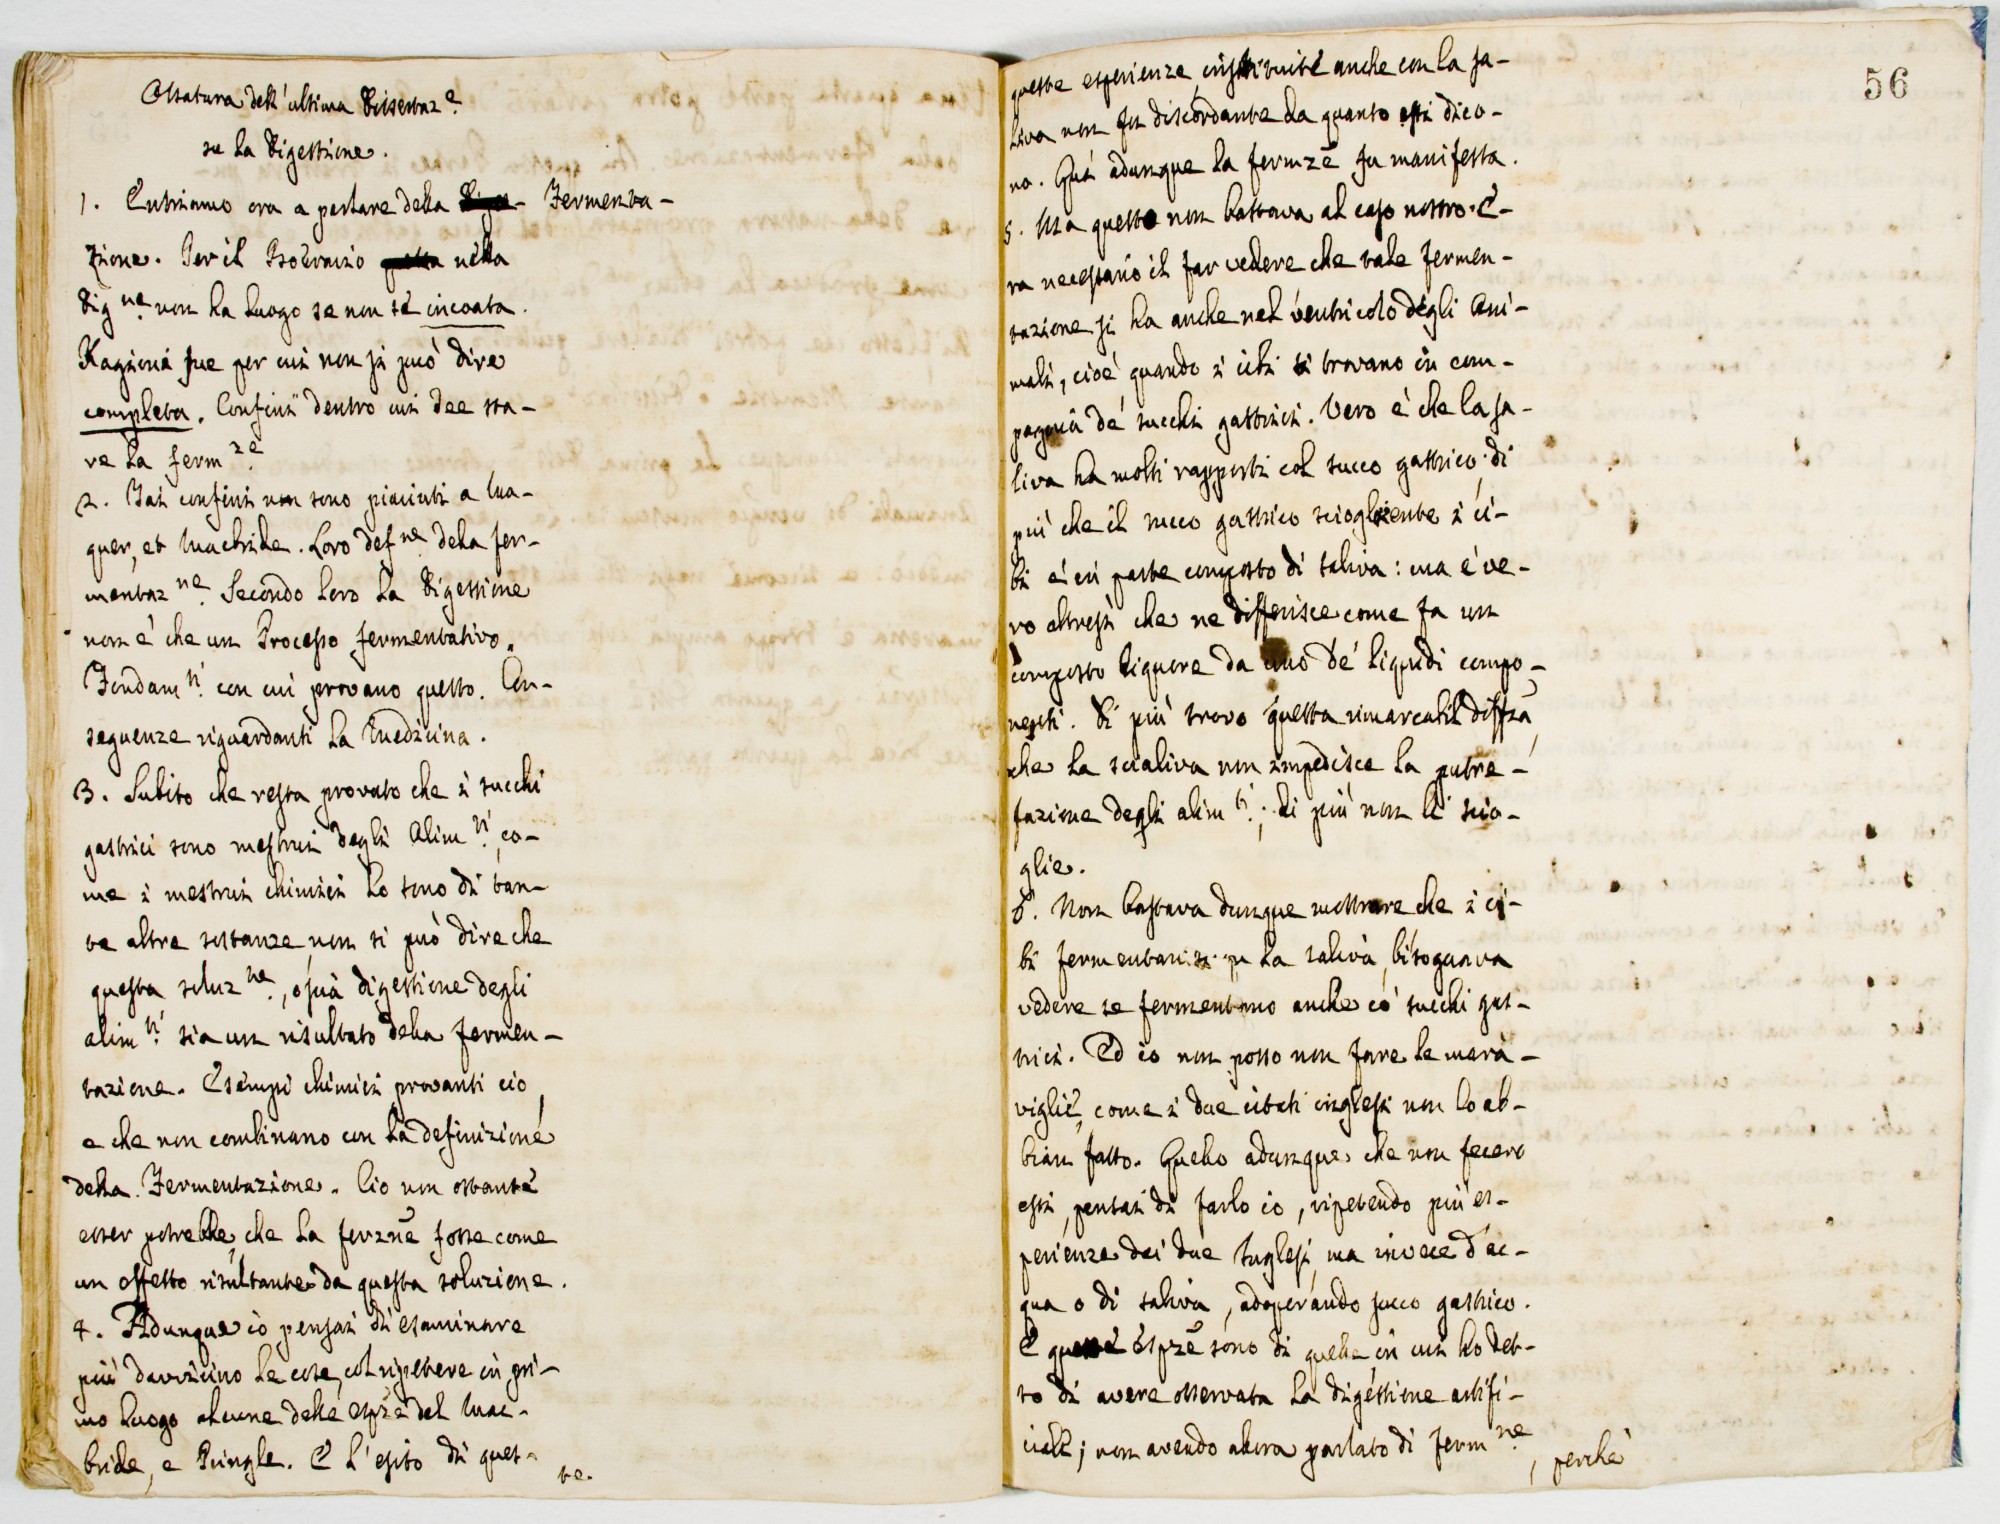 Ossatura dell'ultima Dissertaz.e
su la Digestione.
1. Entriamo ora a parlare della Fermenta-
zione. Per il Boeravio nella
Dig.ne non ha luogo se non se incoata.
Ragioni sue per cui non si può dire
completa. Confini dentro cui dee sta-
re la ferm.ze
2. Tai confini non sono piaciuti a Ma-
quer, et Macbride. Loro def.ne della fer-
mentaz.ne. Secondo loro la Digestione
non è che un Processo fermentativo.
Fondam.ti con cui provano questo. Con-
seguenze riguardanti la Medicina.
3. Subito che resta provato che i succhi
gastrici sono mestrui degli Alim.ti, co-
me i mestrui chimici lo sono di tan-
te altre sostanze, non si può dire che
questa soluz.ne, ossia digestione degli
alim.ti sia un risultato della fermen-
tazione. Esempi chimici provanti ciò,
e che non combinano con la definizione
della Fermentazione. Ciò non ostante
esser potrebbe, che la ferzne fosse come
un effetto risultante da questa soluzione.
4. Adunque io pensai di esaminare
più davvicino le cose, col ripetere in pri-
mo luogo alcune delle espze del Mac-
bride, e Pringle. E l'esito di ques-
te.
56
queste esperienze instituite anche con la sa-
liva non fu discordante da quanto essi dico-
no. Qui adunque la fermze fu manifesta.
5. Ma questo non bastava al caso nostro. E-
ra necessario il far vedere che tale fermen-
tazione si ha anche nel ventricolo degli Ani-
mali, cioè quando i cibi si trovano in com-
pagnia de' succhi gastrici. Vero è che la sa-
liva ha molti rapporti col succo gastrico; di
più che il succo gastrico sciogliente i ci-
bi è in parte composto di saliva: ma è ve-
ro altresì che ne differisce come fa un
composto liquore da uno de' liquidi compo-
nenti. Di più trovo questa rimarcabil diffza,
che la scialiva non impedisce la putre-
fazione degli alim.ti; di più non li scio-
glie.
6. Non bastava dunque mostrare che i ci-
bi fermentano la saliva, bisognava
vedere se fermentano anche co' succhi gas-
trici. Ed io non posso non fare le mera-
viglie, come i due citati inglesi non lo ab-
bian fatto. Quello adunque che non fecero
essi, pensai di farlo io, ripetendo più es-
perienze dei due Inglesi, ma invece d'ac-
qua o di saliva, adoperando succo gastrico.
E queste espze sono di quelle in cui ho det-
to di avere osservata la digestione artifi-
ciale; non avendo allora parlato di ferm.ne,
perchè